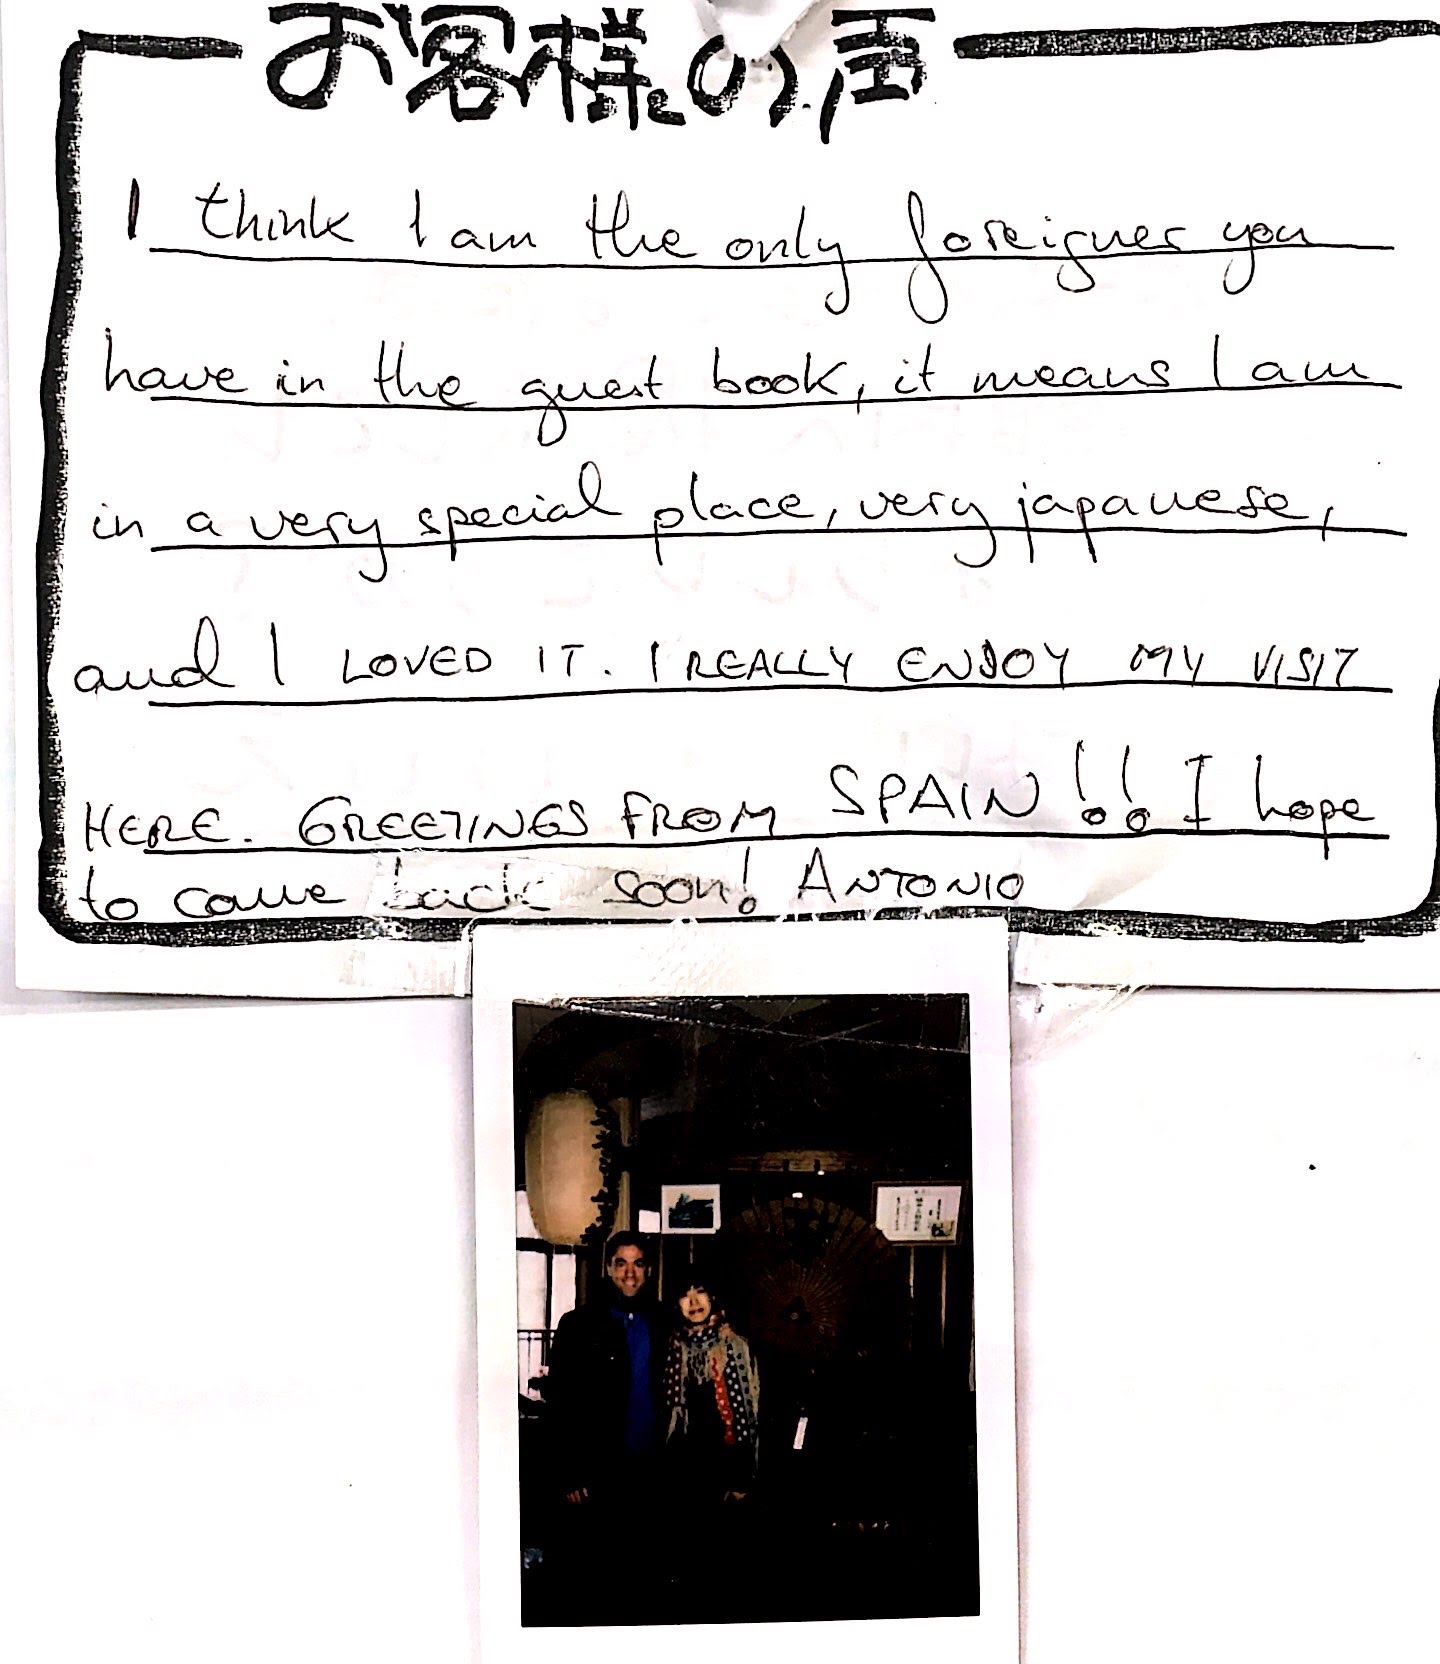 お客様の声
I think I am the only foreigner you
have in the guest book, it means I am
in a very special place, very japanese,
and I LOVED IT. I REALLY ENJOY MY VISIT
HERE. GREETINGS FROM SPAIN!! I hope
to come back soon! ANTONIO